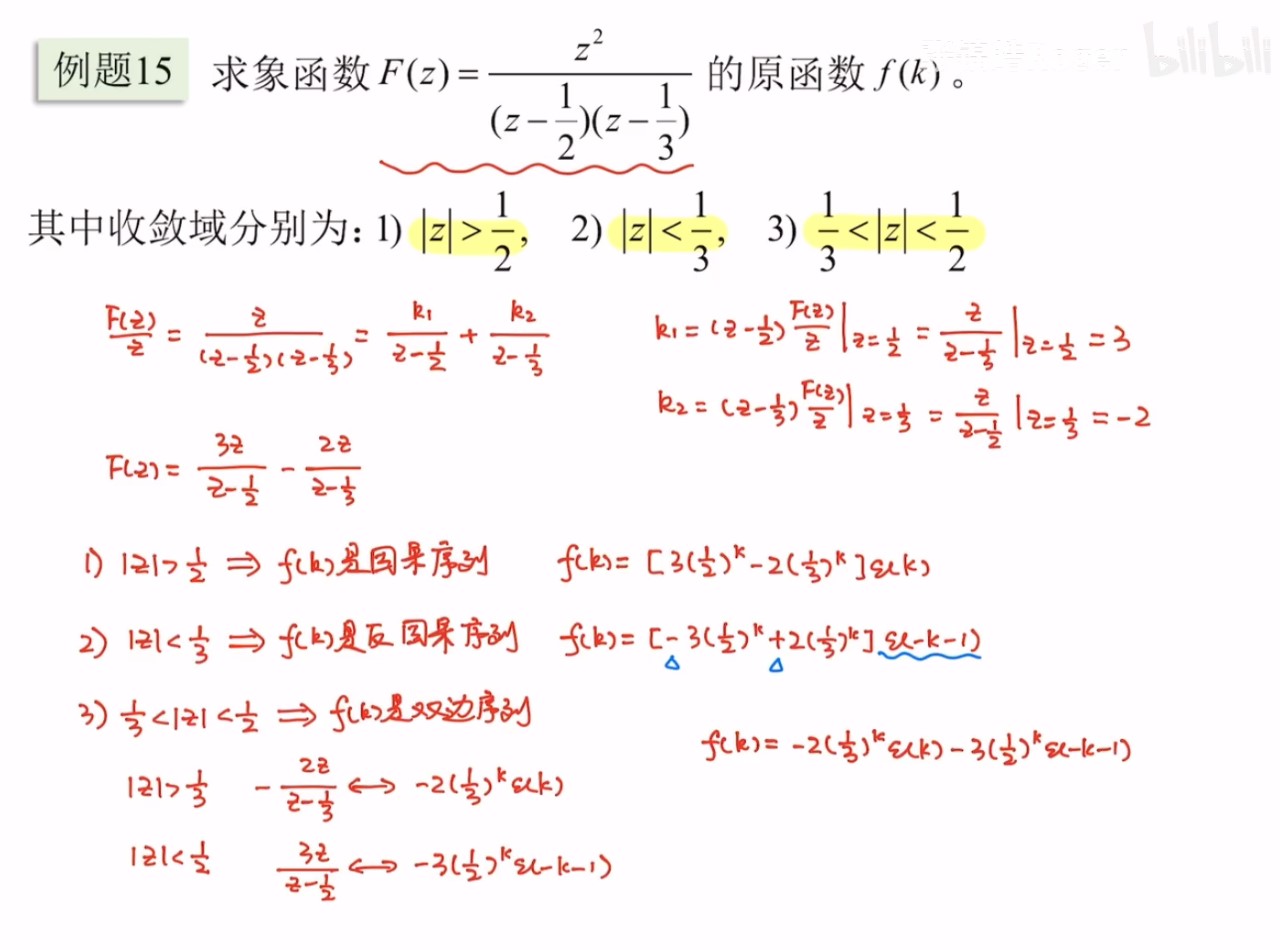 bilibili
例题15 求象函数 F(z) = z² / ((z − 1/2)(z − 1/3)) 的原函数 f(k)。
其中收敛域分别为：1) |z| > 1/2, 2) |z| < 1/3, 3) 1/3 < |z| < 1/2
F(z)/z = z / ((z − 1/2)(z − 1/3)) = k₁/(z − 1/2) + k₂/(z − 1/3)
k₁ = (z − 1/2) F(z)/z |z=1/2 = z/(z − 1/3) |z=1/2 = 3
k₂ = (z − 1/3) F(z)/z |z=1/3 = z/(z − 1/2) |z=1/3 = −2
F(z) = 3z/(z − 1/2) − 2z/(z − 1/3)
1) |z| > 1/2 ⇒ f(k)是因果序列 f(k) = [3(1/2)^k − 2(1/3)^k]ε(k)
2) |z| < 1/3 ⇒ f(k)是反因果序列 f(k) = [−3(1/2)^k + 2(1/3)^k]ε(−k−1)
3) 1/3 < |z| < 1/2 ⇒ f(k)是双边序列
|z| > 1/3 − 2z/(z − 1/3) ↔ −2(1/3)^k ε(k)
|z| < 1/2 3z/(z − 1/2) ↔ −3(1/2)^k ε(−k−1)
f(k) = −2(1/3)^k ε(k) − 3(1/2)^k ε(−k−1)